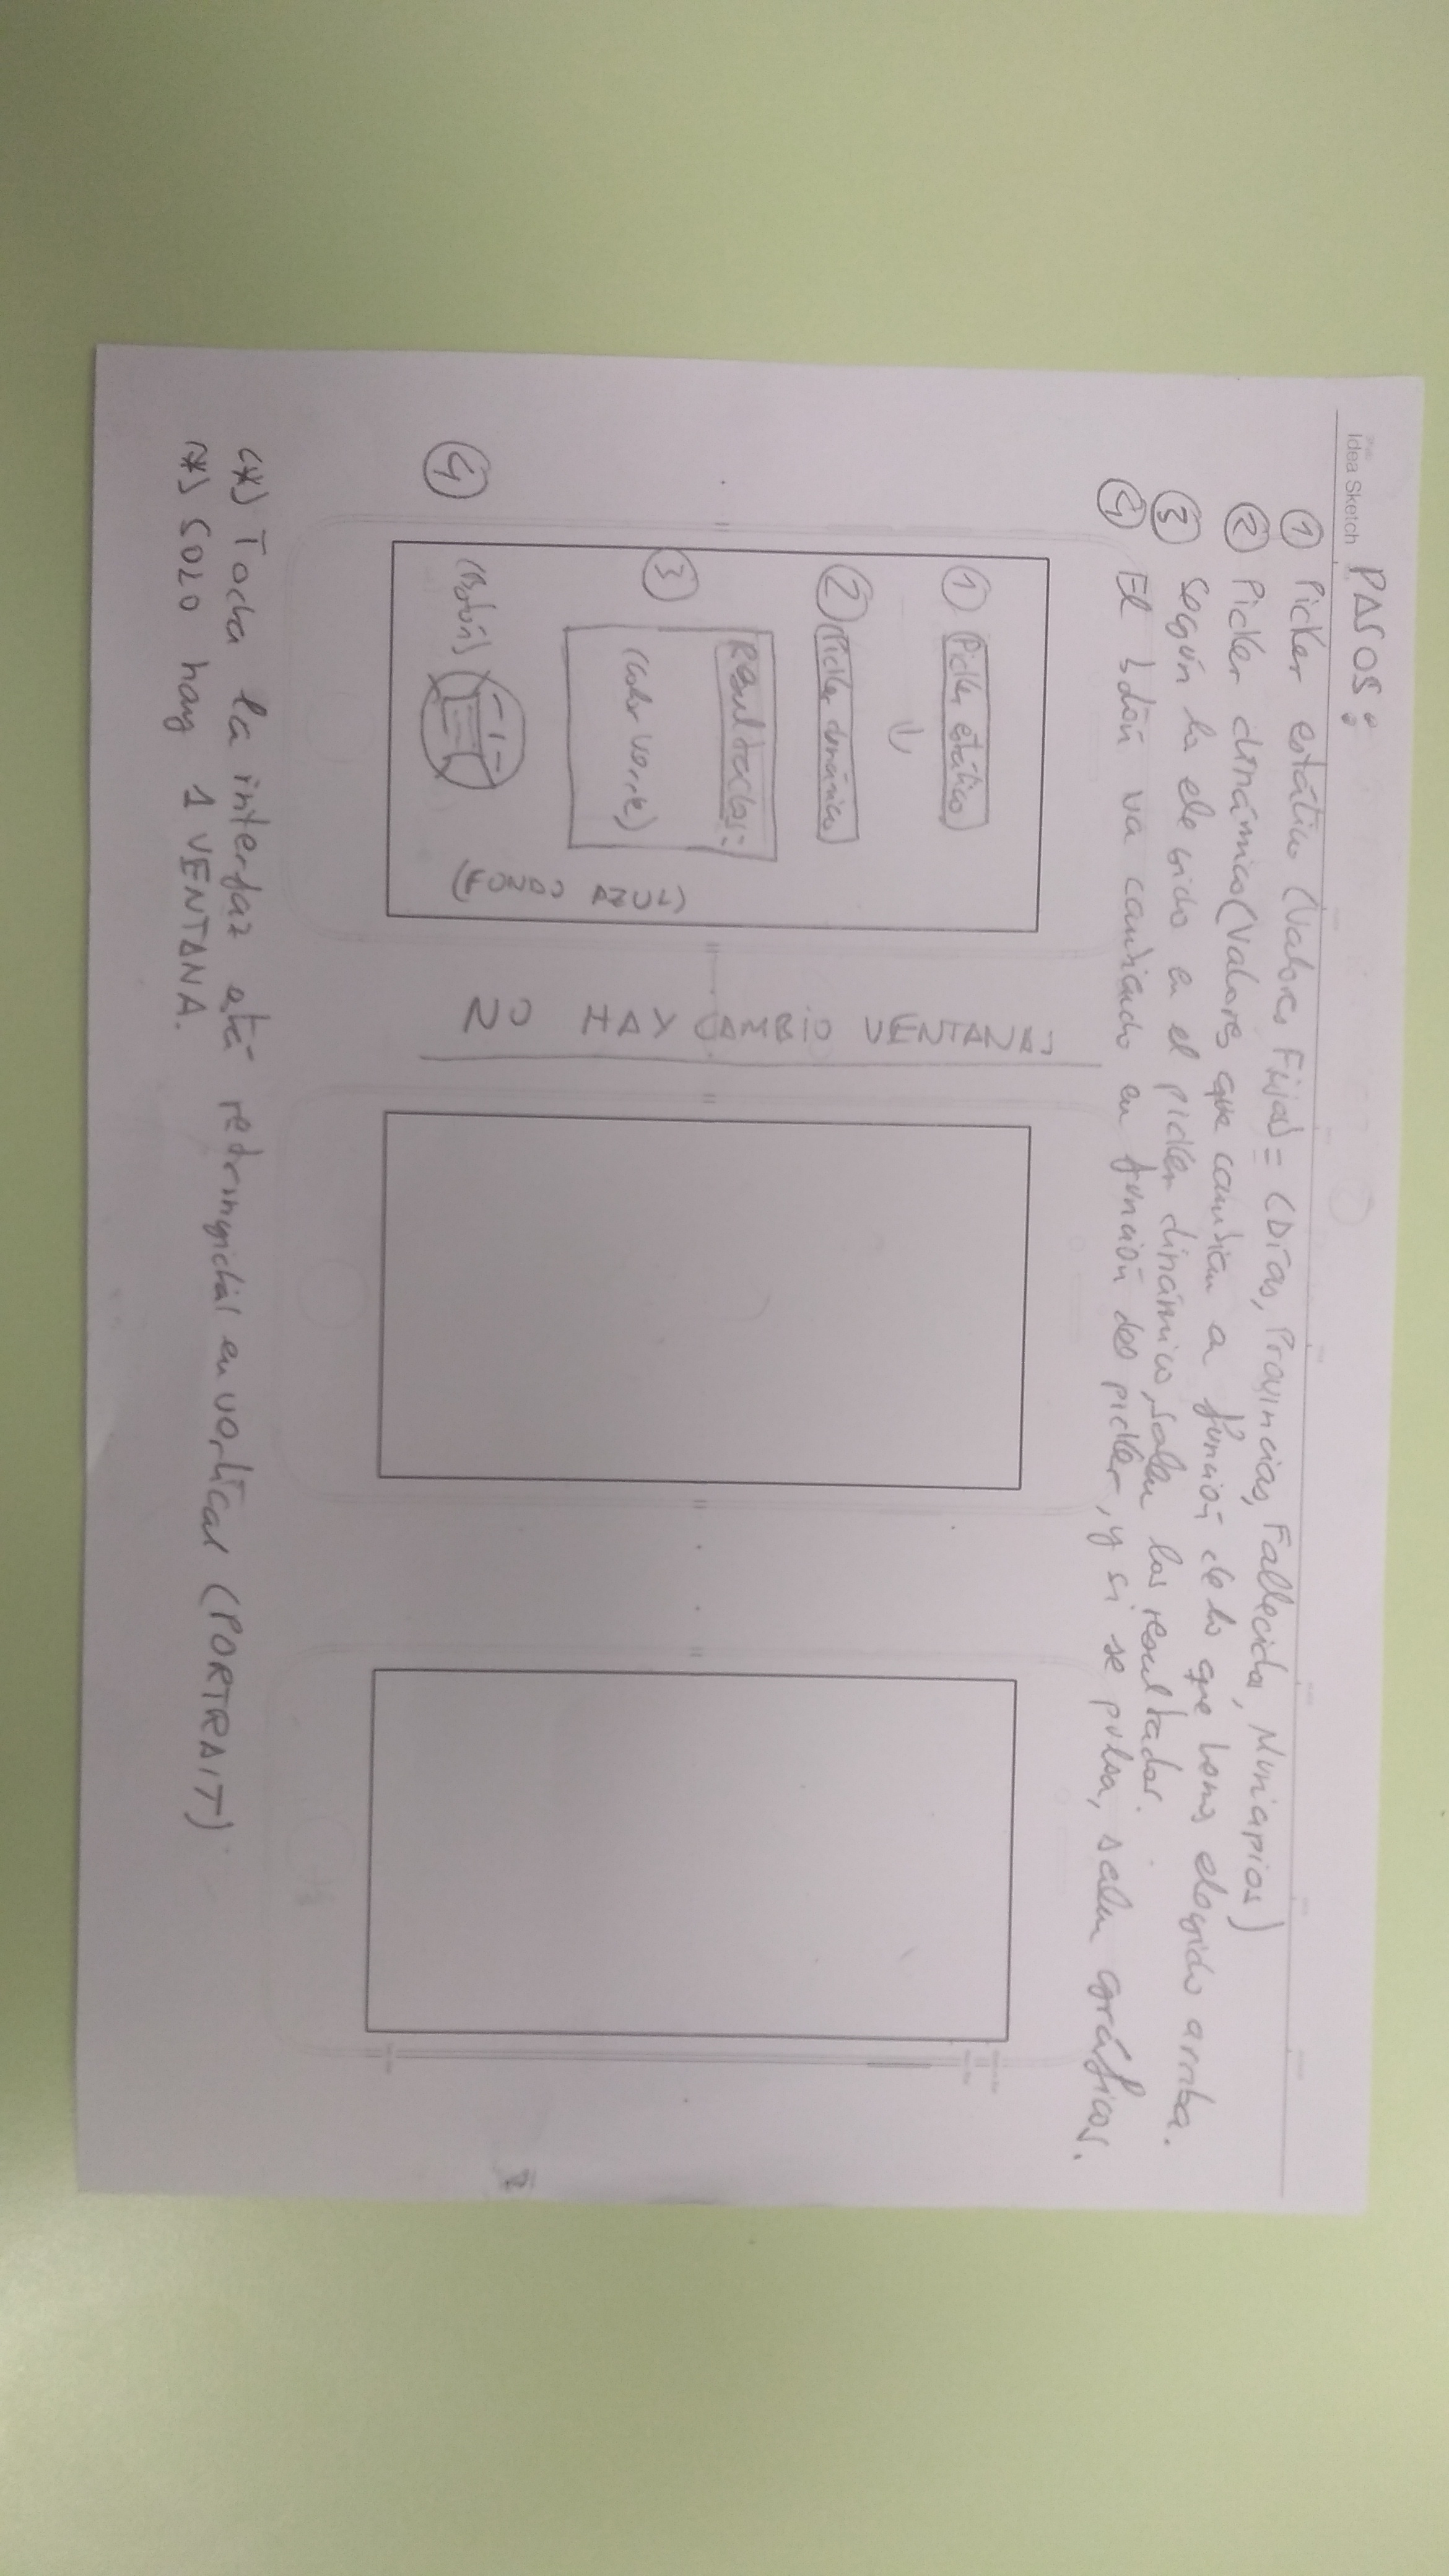 Idea Sketch
PASOS:
① Picker estático (Valores Fijos) = (Días, Provincias, Fallecidos, Municipios)
② Picker dinámico (Valores que cambian a función de lo que hemos elegido arriba.
③ Según lo elegido en el picker dinámico, salen los resultados.
④ El botón va cambiando en función del picker, y si se pulsa, salen gráficos.
① Picker estático
② Picker dinámico
③ Resultados:
(Color verde)
(FONDO AZUL)
④ (Botón)
NO HAY CAMBIO VENTANAS
(*) Toda la interfaz está restringida en vertical (PORTRAIT)
(*) SOLO hay 1 VENTANA.